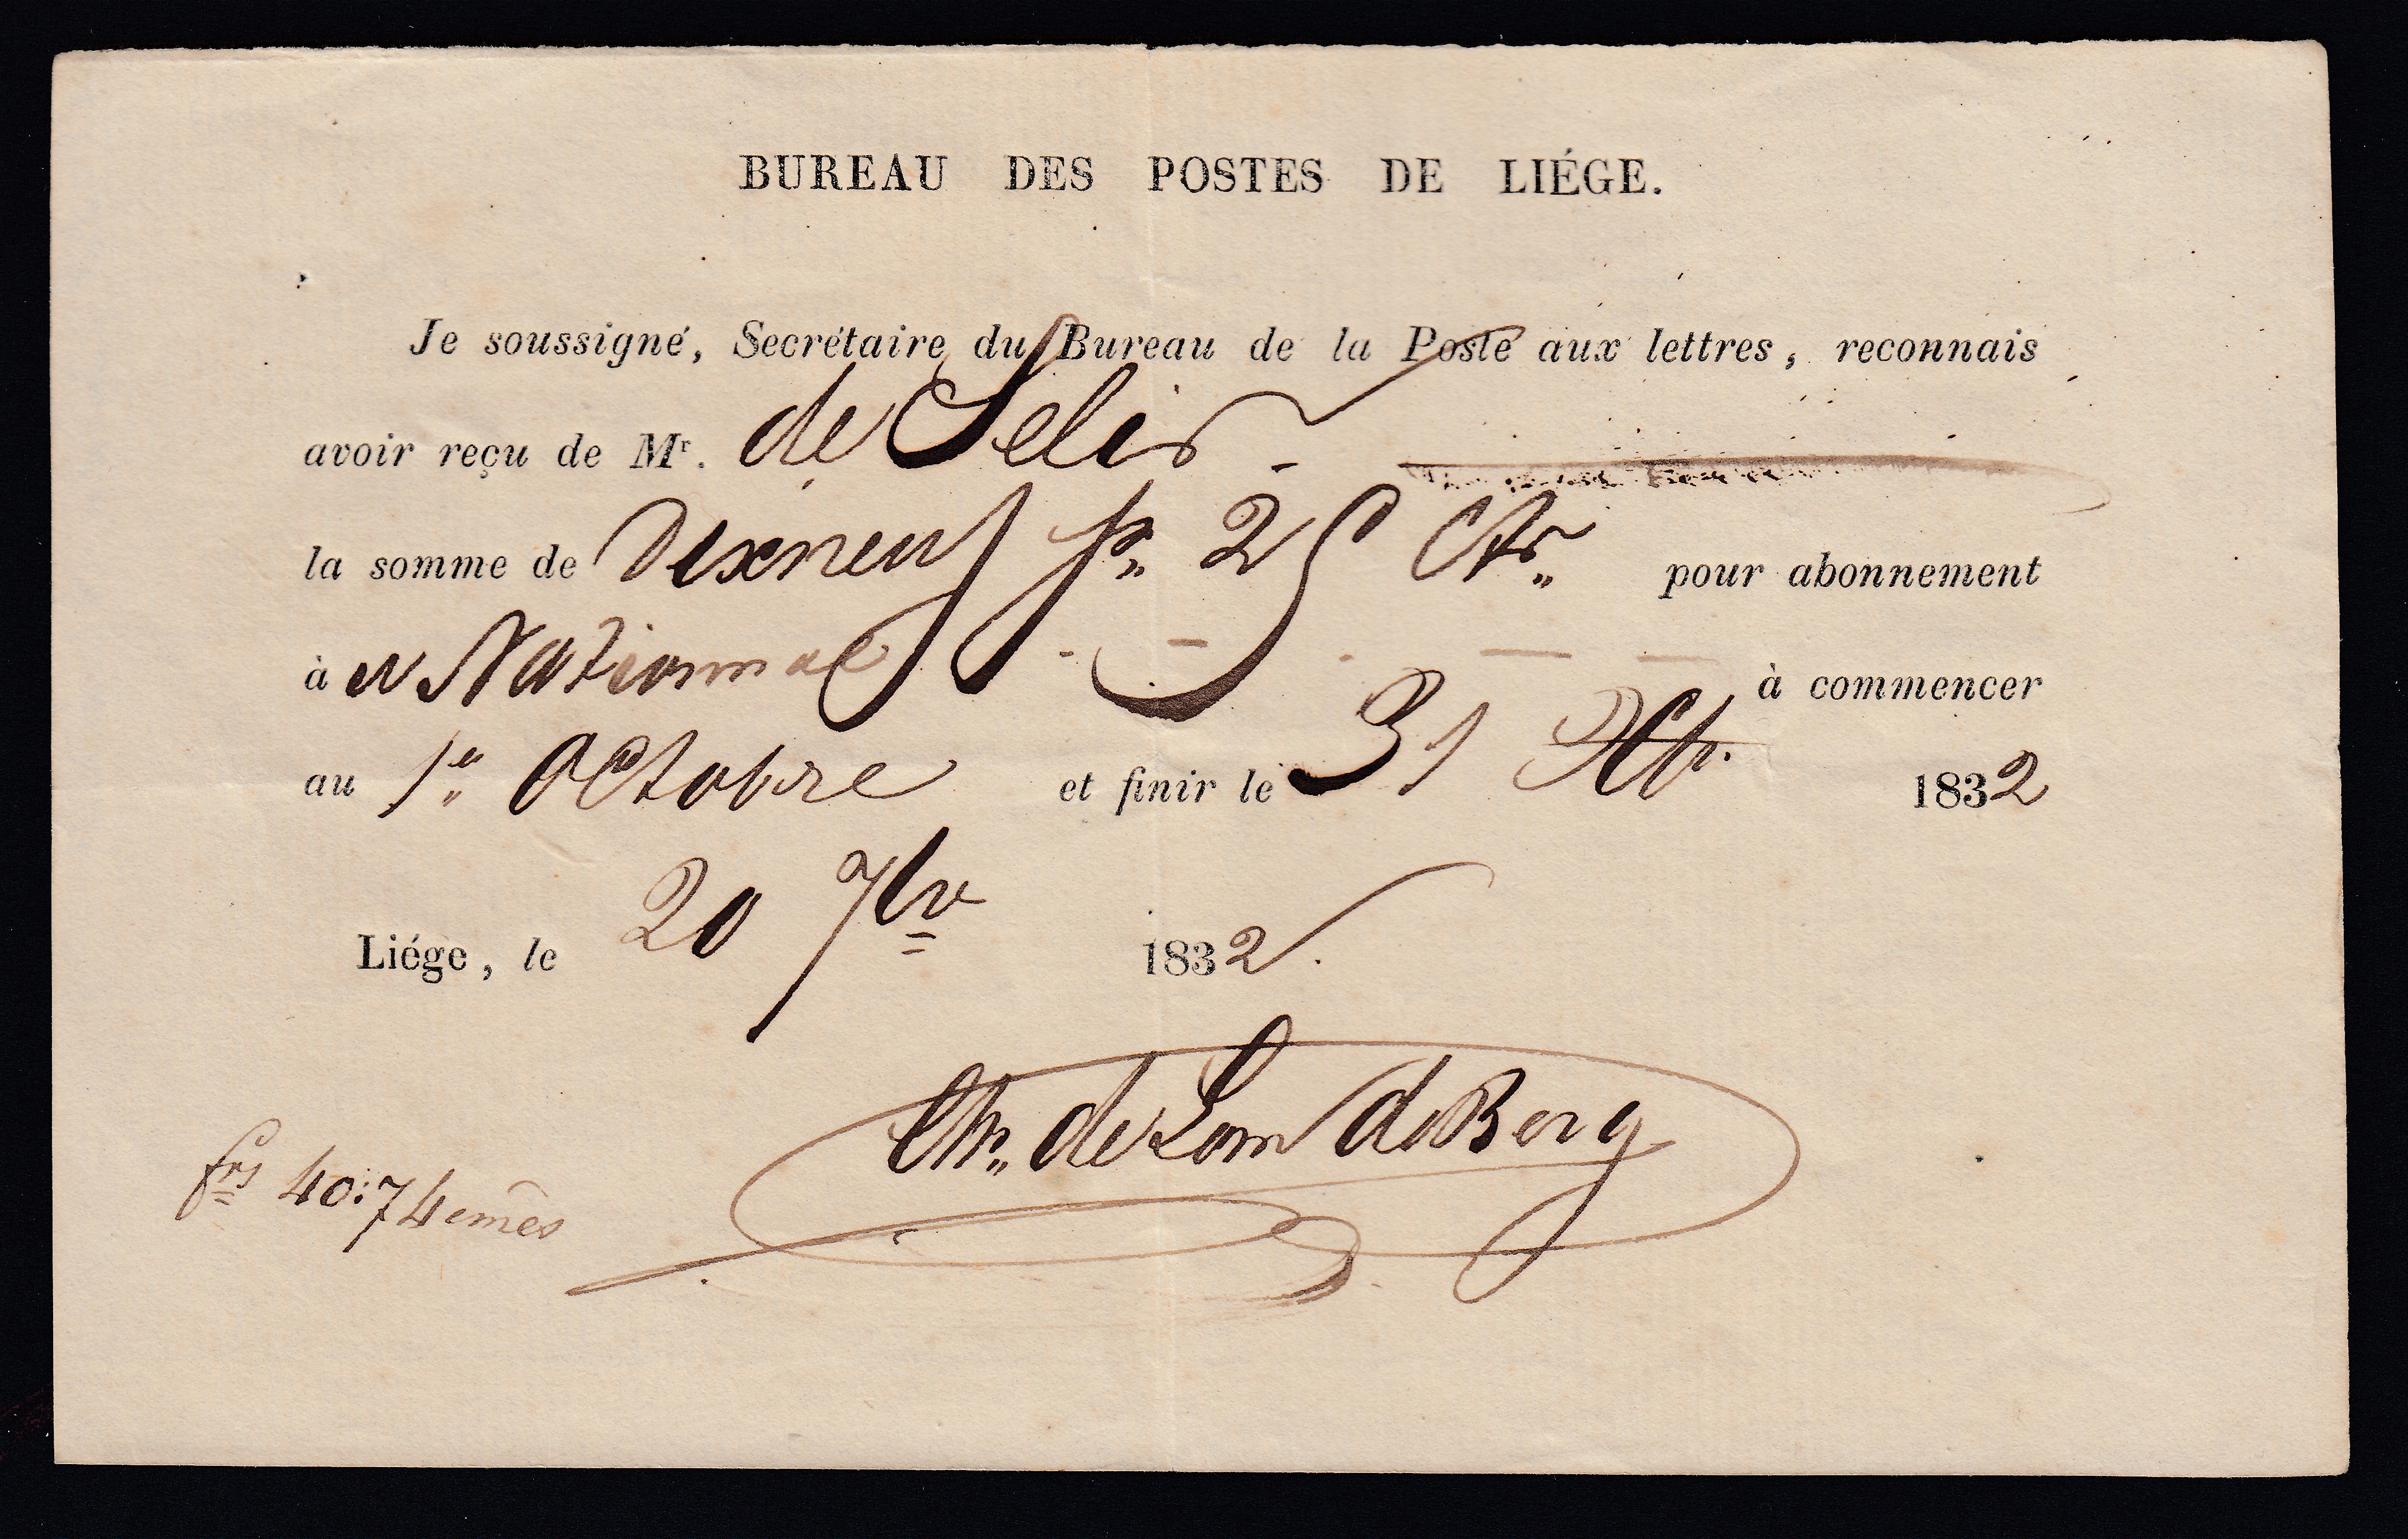 BUREAU DES POSTES DE LIÉGE.
Je soussigné, Secrétaire du Bureau de la Poste aux lettres, reconnais
avoir reçu de Mr. de Selis
la somme de Dixneuf fr. 25 Cts. pour abonnement
à National à commencer
au 1er Octobre et finir le 31 Xbr. 1832
Liége, le 20 7bre 1832.
de Lom de Berg
frs 40:74 cmes